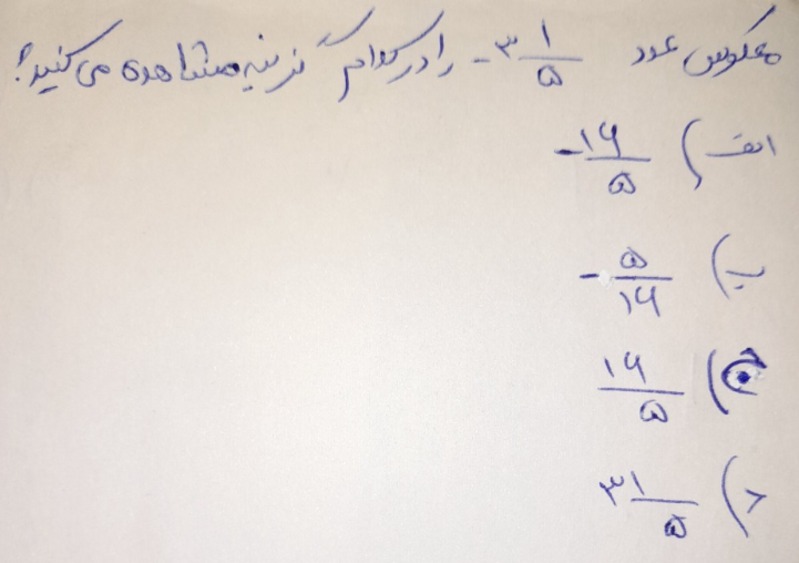 معکوس عدد -۳ ۱/۵ را در کدام گزینه مشاهده می کنید؟
الف) -۱۶/۵
ب) -۵/۱۶
ج) ۱۶/۵
د) ۳۱/۵